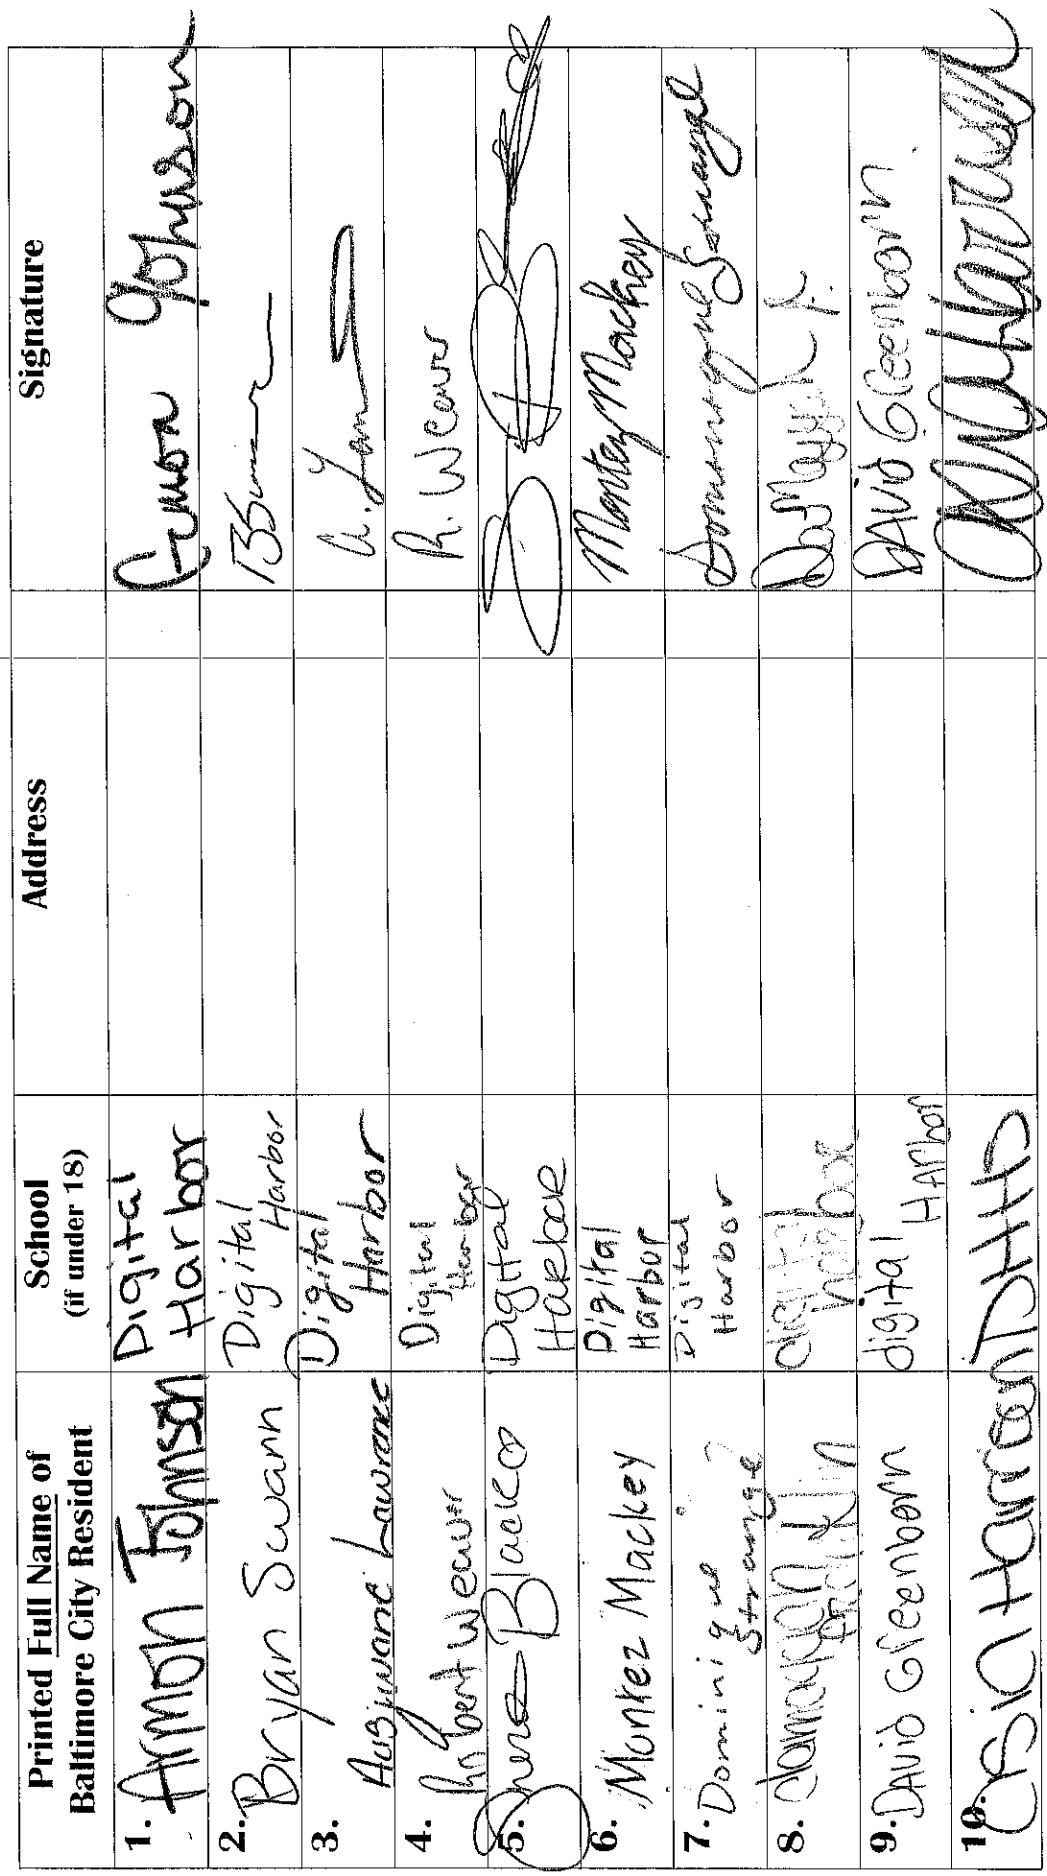 Printed Full Name of Baltimore City Resident School (if under 18) Address Signature
1. Armon Johnson Digital Harbor Armon Johnson
2. Bryan Swann Digital Harbor
3. Lawrence Digital Harbor
4. Robert Weaver Digital Harbor R. Weaver
5. Blackco Digital Harbor
6. Montez Mackey Digital Harbor Montez Mackey
7. Dominique Strange Digital Harbor Dominique Strange
8. digital harbor
9. DAViD Greenborn digital HArbor DAViD Greenborn
10. Asia Harrison DHHS